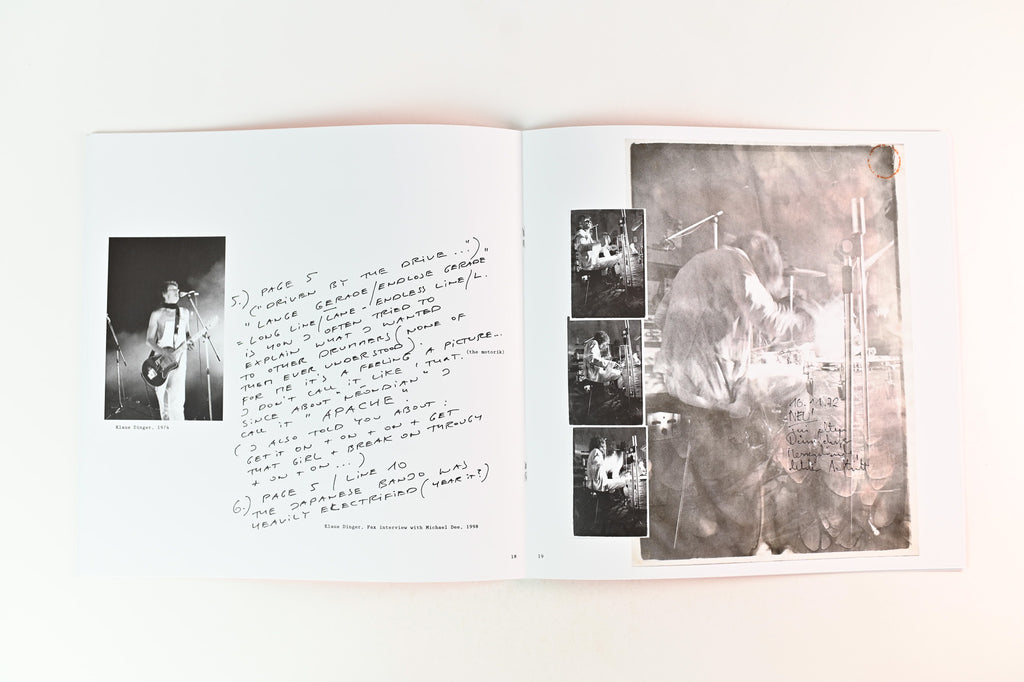 5.) PAGE 5
("DRIVEN BY THE DRIVE...")
"LANGE GERADE/ENDLOSE GERADE"
= LONG LINE/LANE - ENDLESS LINE/L.
IS HOW I OFTEN TRIED TO
EXPLAIN WHAT I WANTED
TO OTHER DRUMMERS (NONE OF
THEM EVER UNDERSTOOD).
(the motorik)
FOR ME IT'S A FEELING, A PICTURE...
I DON'T CALL IT LIKE THAT.
SINCE ABOUT "NÉONDIAN" I
CALL IT "APACHE".
(I ALSO TOLD YOU ABOUT:
GET IT ON + ON + ON + GET
THAT GIRL + BREAK ON THROUGH
+ ON + ON ...)
6.) PAGE 5 / LINE 10
THE JAPANESE BANJO WAS
HEAVILY ELECTRIFIED (HEAR IT?)
Klaus Dinger, 1974
Klaus Dinger, Fax interview with Michael Dee, 1998
18
19
NEU!